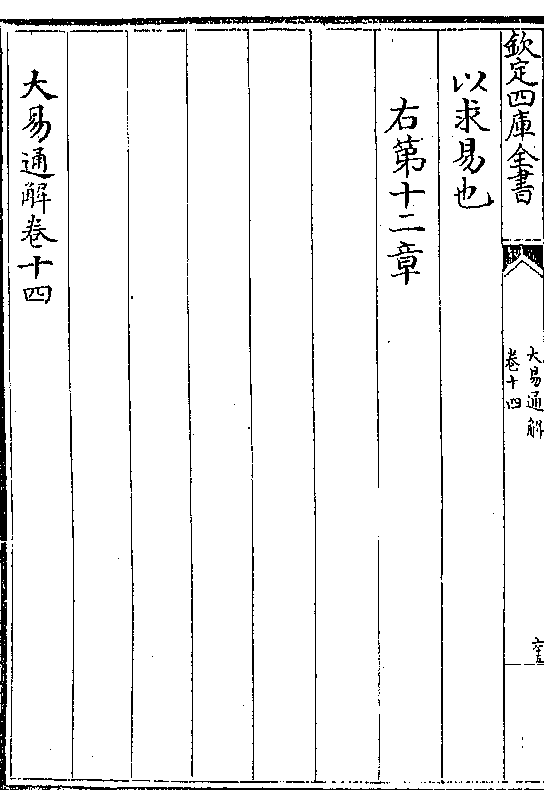 欽定四庫全書
大易通解
卷十四
以求易也
右第十二章
大易通解卷十四